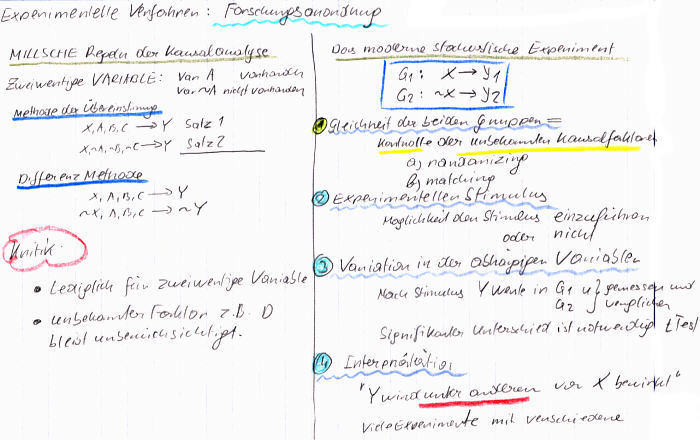 Experimentelle Verfahren: Forschungsanordnung
MILLSCHE Regeln der Kausalanalyse
Zweiwertige VARIABLE: Var A vorhanden
Var ~A nicht vorhanden
Methode der Übereinstimung
X, A, B, C → Y Satz 1
X, ~A, ~B, ~C → Y Satz 2
Differenz Methode
X, A, B, C → Y
~X, A, B, C → ~Y
Kritik:
• Lediglich für zweiwertige Variable
• unbekannter Faktor z.B. D
bleibt unberücksichtigt.
Das moderne stochastische Experiment
G1: X → Y1
G2: ~X → Y2
1 Gleichheit der beiden Gruppen =
Kontrolle der unbekannten Kausalfaktoren
a) randomizing
b) matching
2 Experimentellen Stimulus
Möglichkeit den Stimulus einzuführen
oder nicht
3 Variation in der abhängigen Variablen
Nach Stimulus Y Werte in G1 u } gemessen und
G2 } verglichen
Signifikanter Unterschied ist notwendig t Test
4 Interprätation
"Y wird unter anderen von X bewirkt"
Viele Experimente mit verschiedene